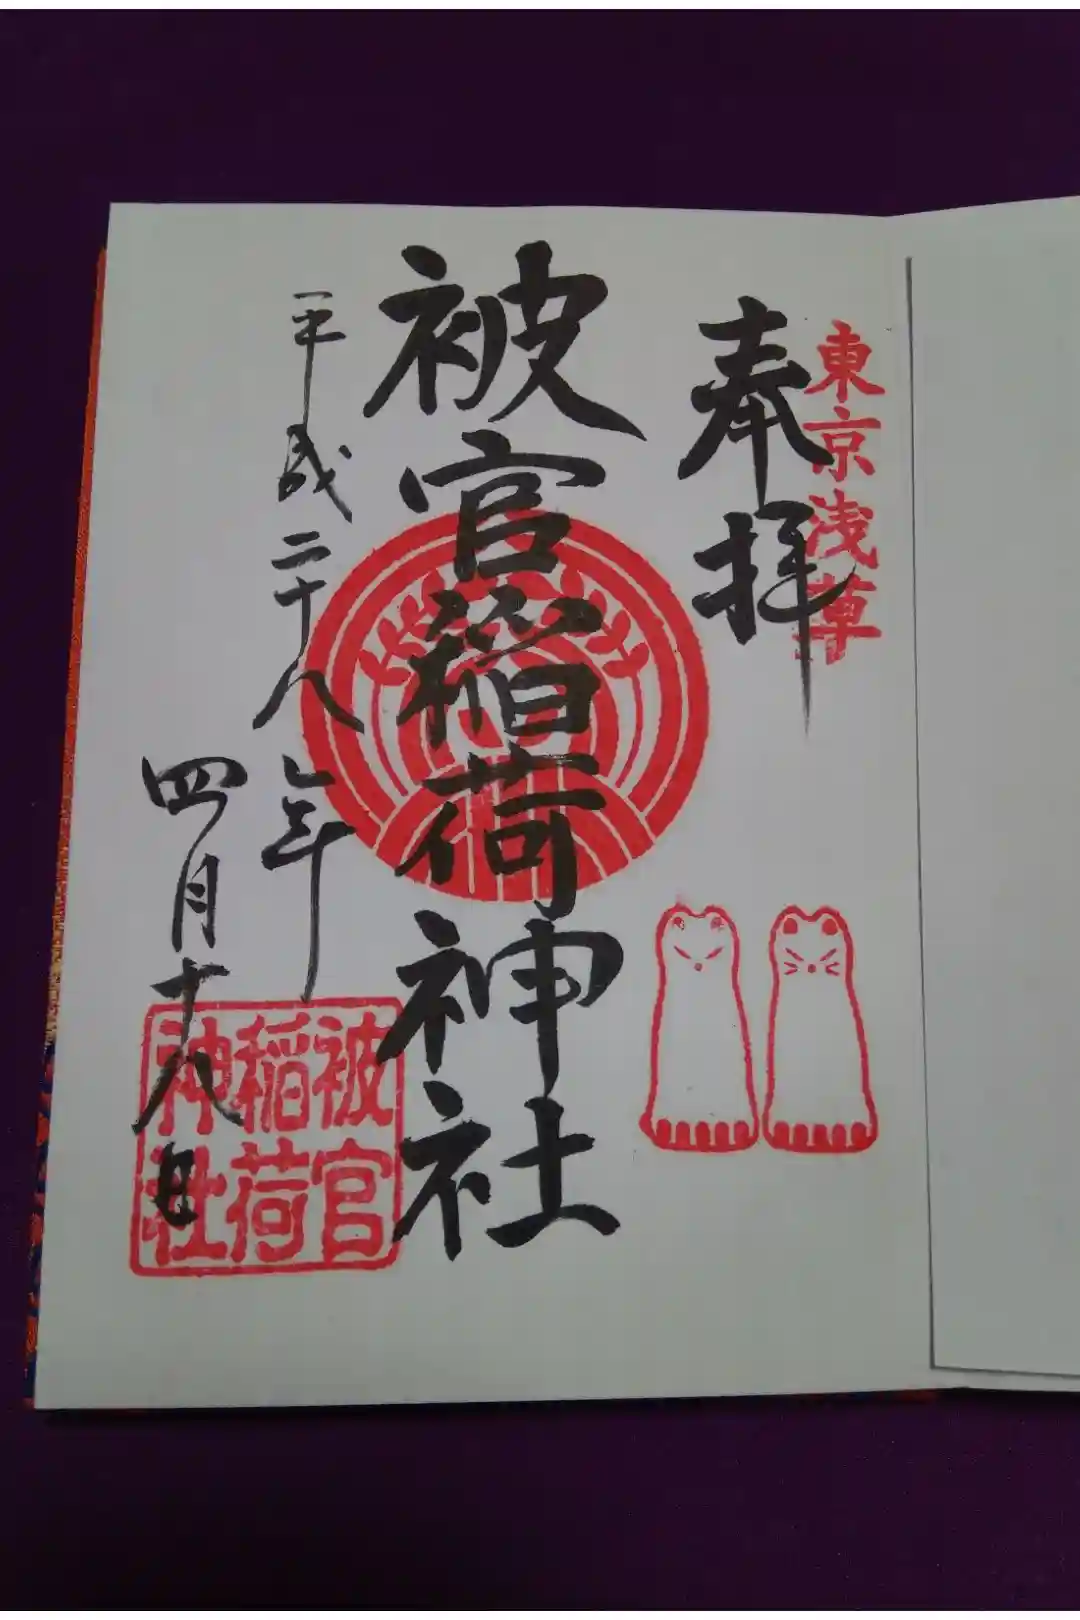 東京浅草
奉拝
被官稲荷神社
平成二十八年
四月十八日
被官
稲荷
神社